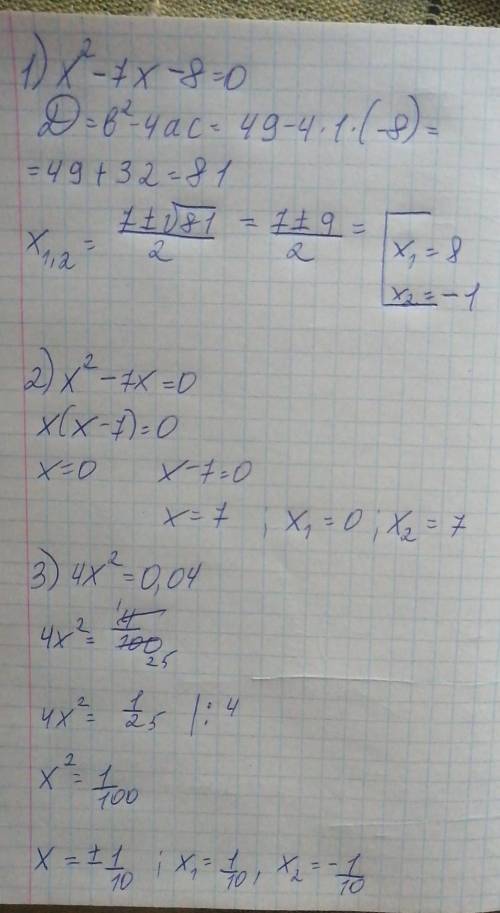 1) x² - 7x - 8 = 0
D = b² - 4ac = 49 - 4 · 1 · (-8) =
= 49 + 32 = 81
x₁,₂ = (7 ± √81)/2 = (7 ± 9)/2 = [ x₁ = 8
x₂ = -1
2) x² - 7x = 0
x(x - 7) = 0
x = 0 x - 7 = 0
x = 7 ; x₁ = 0 ; x₂ = 7
3) 4x² = 0,04
4x² = 4/100 1 25
4x² = 1/25 |: 4
x² = 1/100
x = ± 1/10 ; x₁ = 1/10, x₂ = - 1/10